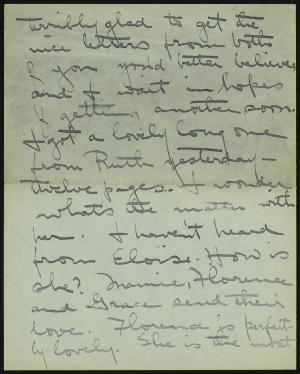 terribly glad to get the
nice letters from both
of you you'd better believe
and I wait in hopes
of getting another soon.
I got a lovely long one
from Ruth yesterday –
twelve pages. I wonder
whats the matter with
her. I haven't heard
from Eloise. How is
she? Mamie, Florence
and Grace send their
love. Florence is perfect-
ly lovely. She is the most